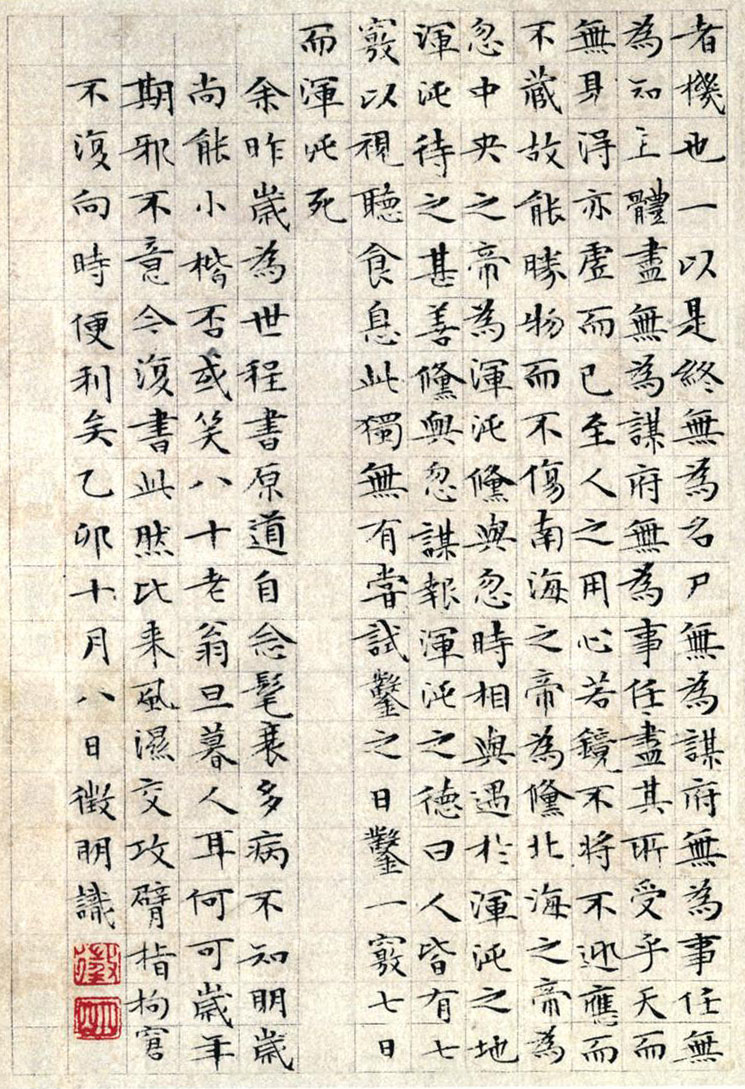 者機也一以是終無為名尸無為謀府無為事任無
為知主體盡無為謀府無為事任盡其所受乎天而
無見得亦虛而已至人之用心若鏡不將不迎應而
不藏故能勝物而不傷南海之帝為儵北海之帝為
忽中央之帝為渾沌儵與忽時相與遇於渾沌之地
渾沌待之甚善儵與忽謀報渾沌之德曰人皆有七
竅以視聽食息此獨無有嘗試鑿之日鑿一竅七日
而渾沌死
余昨歲為世程書原道自念髦衰多病不知明歲
尚能小楷否或笑八十老翁旦暮人耳何可歲年
期邪不意今復書此然比來風濕交攻臂指拘窘
不復向時便利矣乙卯十月八日徵明識
徵
明